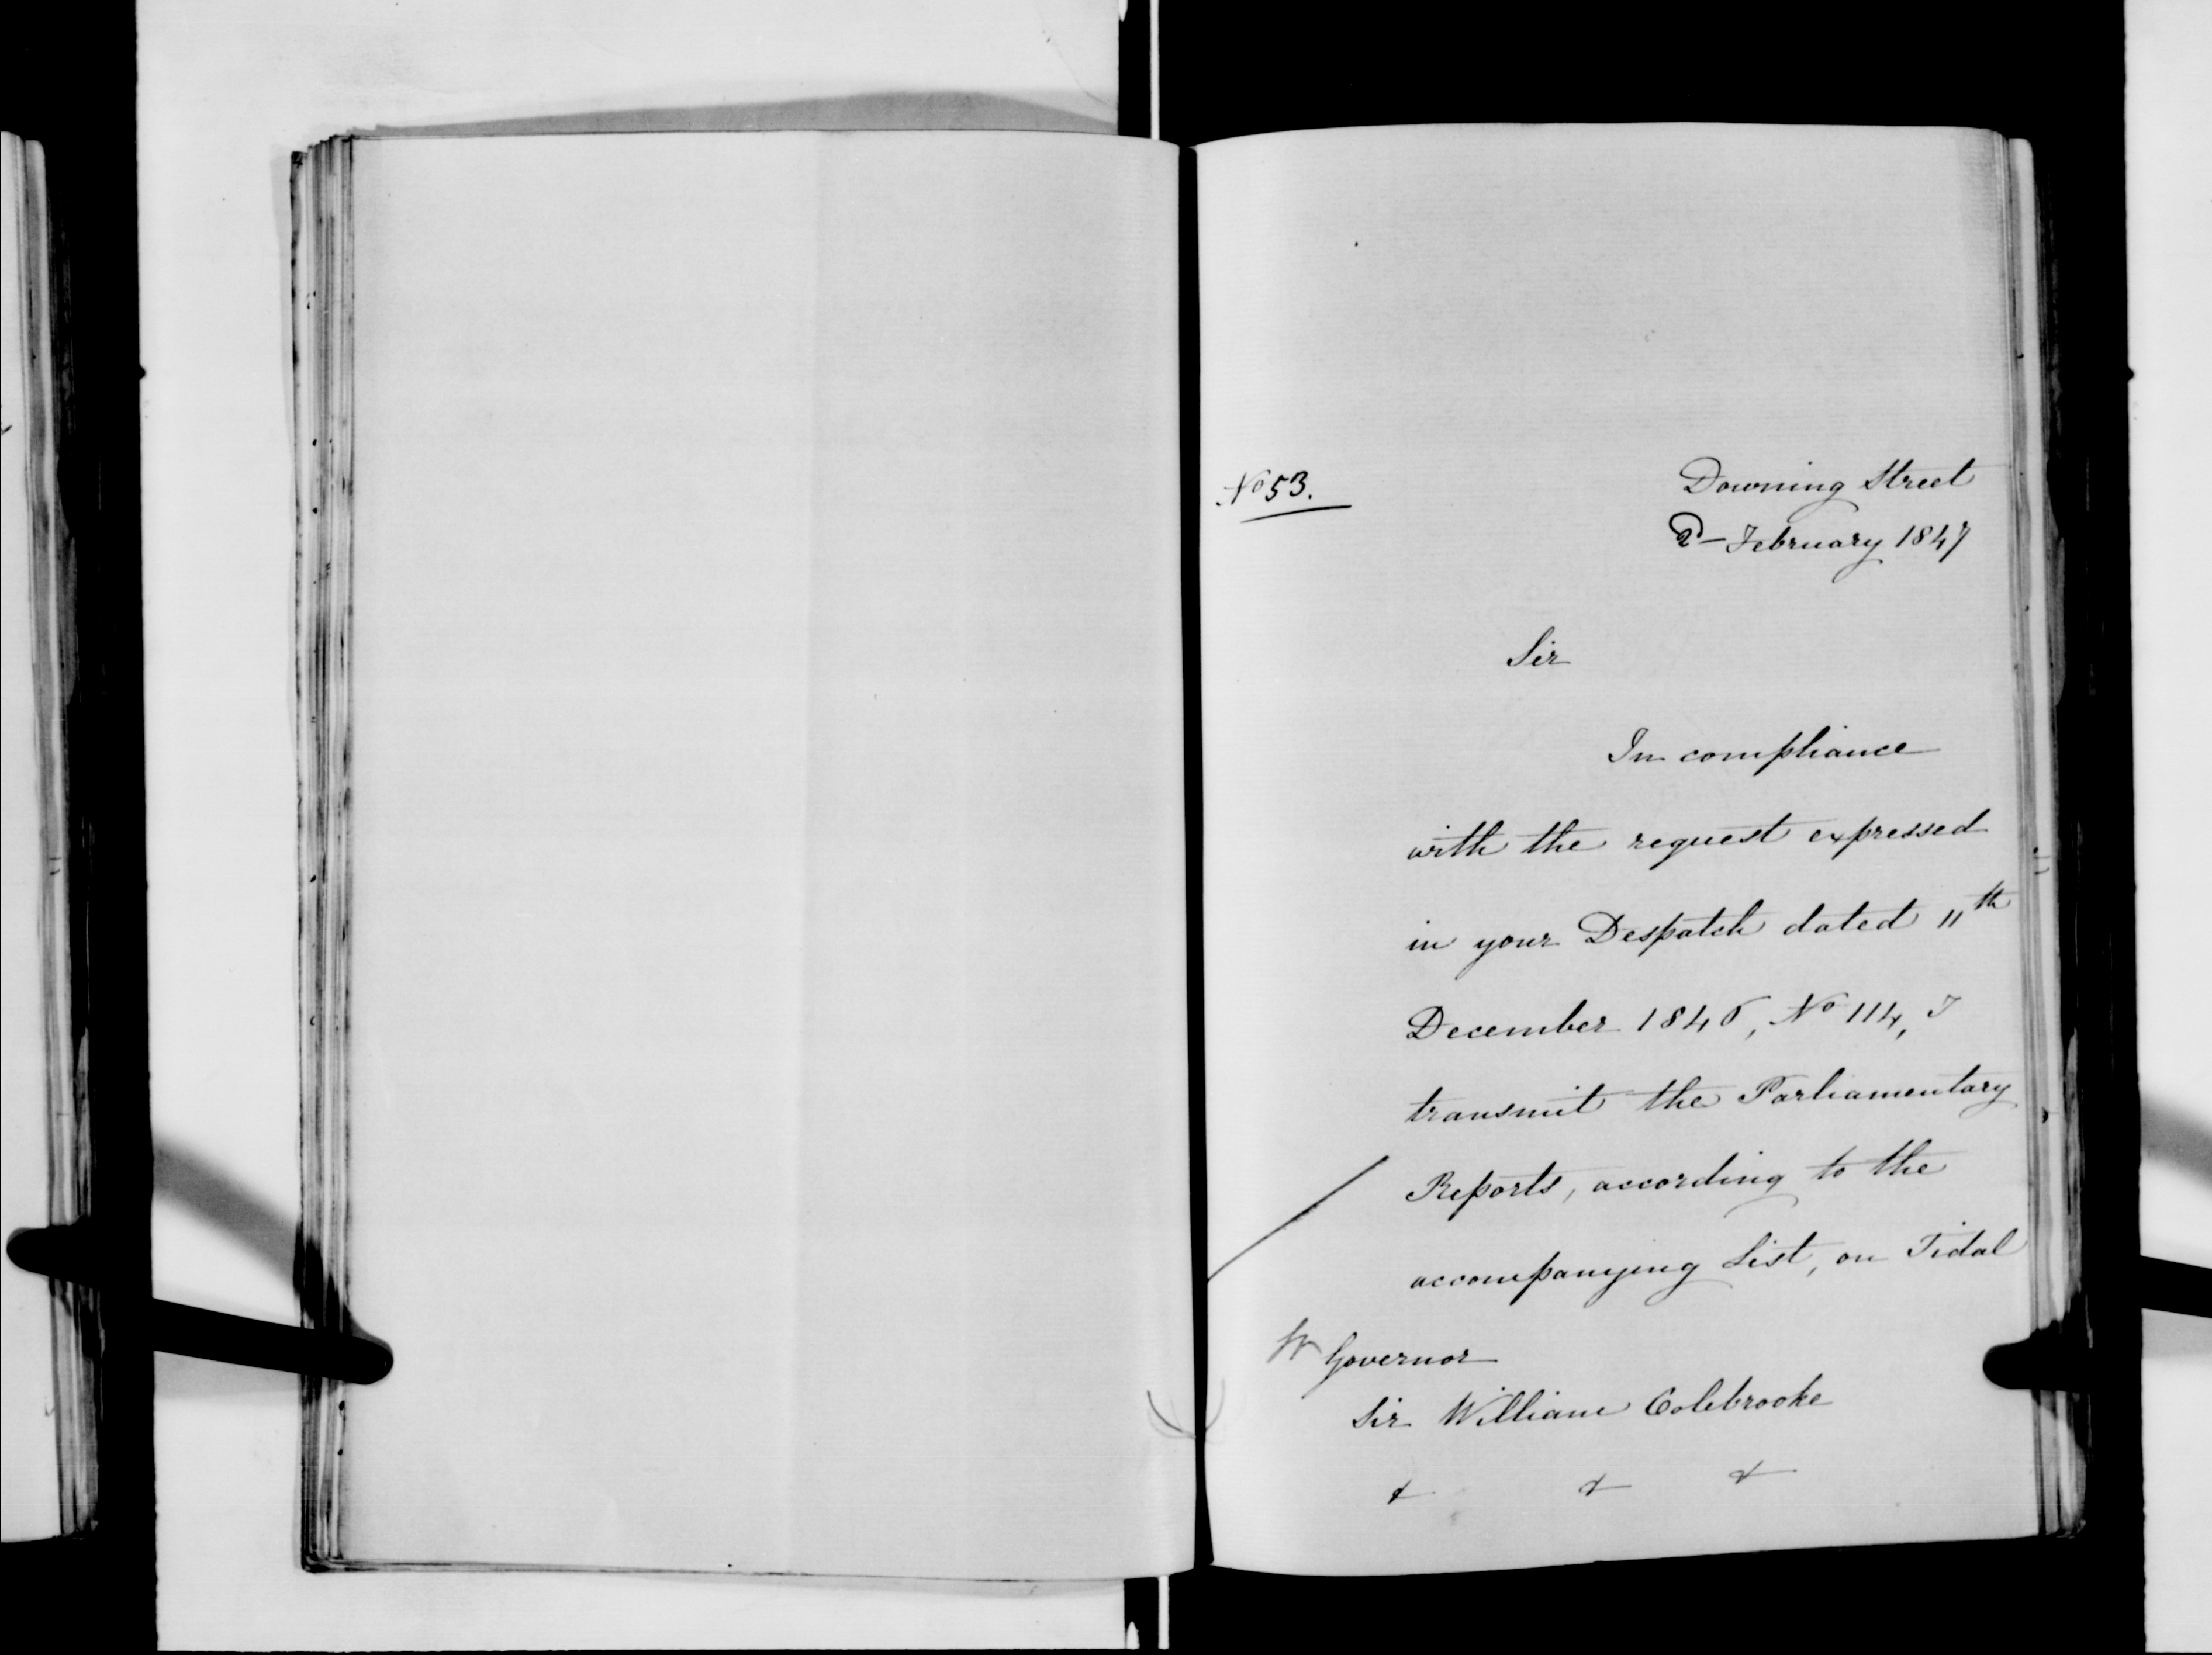 No 53.
Downing Street
2d February 1847
Sir
In compliance
with the request expressed
in your Despatch dated 11th
December 1846, No 114, I
transmit the Parliamentary
Reports, according to the
accompanying List, on Tidal
Governor
Sir William Colebrooke
& & &